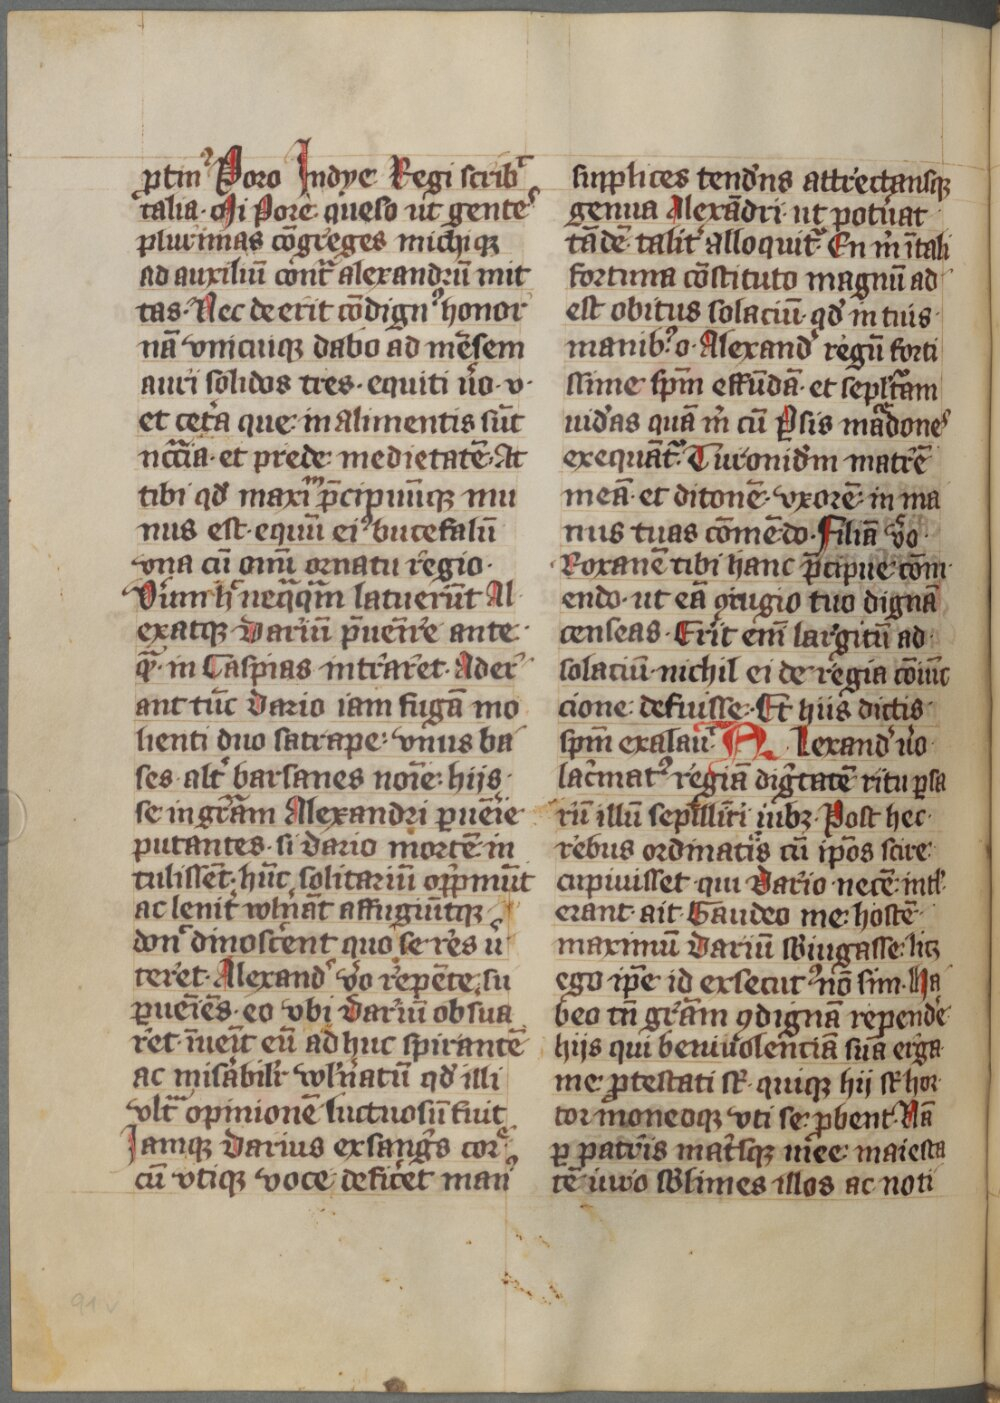 ꝓtin᷒ Poro Indye Regi scribᷣ
talia. Mi Pore queso ut gente᷒
plurimas cōgreges michiqꝫ
ad auxiliū contᷓ alexandrū mit
tas. Nec deerit cōdignꝰ honor
nā vnicuiqꝫ dabo ad mēsem
auri solidos tres. equiti u̾o .v.
et cet̾a que in alimentis sūt
nccͣia. et prede medietatē. At
tibi qd̾ maxīᵐ p̄cipuūqꝫ mu
nus est. equū eiꝰ bucefalū
vna cū omī ornatu regio.
Verum h̾ neqͣqͣm latuerūt Al
exatqꝫ Dariū p̄uenire ante
qͣꝫ in Caspias intraret. Ader
ant tūc Dario iam fugā mo
lienti duo satrape. vnus ba
ses alt̾ barsanes noīe. hijs
se in gr̄am Alexandri ꝑuenire
putantes. si Dario mortē in
tulissēt. hūc solitariū opp̄mūt
ac lenit̾ wln̾āt affugiūtqꝫ
don̾ dinoscerent quo se res u̾
teret. Alexand᷒ vo̾ repente su
ꝑueīēs. eo vbi Dariū obsua
ret. īueīt eū ad huc spirantē
ac mis̾abilit̾ wln̾atū qd̾ illi
vltᷓ opinionē luctuosū fuit
Iamqꝫ Darius exsangͥs cor᷒
cū vtiqꝫ voce deficeret manꝰ
supplices tendens attrectansqꝫ
genua Alexādri. ut potuāt
tādē talit̾ alloquitᷣ. En m̾ ī tali
fortuna cōstituto magnū ad
est obitus solaciū. qd̾ in tuis
manibꝰ o. Alexand̾ regū forti
ssime sp̄m effūdā. et seplt̾ͣam
uid̾as quā m̾ cū Ꝑsis macͣdone᷒
exequātᷣ. Turonid̾m matrē
meā. et ditonē. vxorē. in ma
nus tuas cōmēdo. Filiā vo̾
Roxanē tibi hanc p̄cipue cōm
endo. ut eā ꝯiugio tuo dignā
censeas. Erit enī largitū ad
solaciū. nichil ei de regia cōiūc
cione defuisse. Et hiis dictis
sp̄m exalauᷣ. Alexand̾ u̾o
lac̾matꝰ regiā dig̾tatē ritu ꝑsa
rū illū sepilliri iubꝫ. Post hec
rebus ordinatis cū ip̄os scire
cupiuisset qui Dario necē intl̾
erant. ait. Gaudeo me hostē
maximū Dariū sb̾iugasse. licꝫ
ego ip̄e id exsecutꝰ nō sim. Ha
beo tn̄ gr̄am ꝯdignā repende̾
hijs qui beniuolenciā suā erga
me ꝓtestati st̾. quiqꝫ hij st̾ hor
tor moneoqꝫ vti se ꝓbent. Nā
ꝑ patris mat̾sqꝫ mee maiesta
tē iuro sb̾limes illos ac noti
91v